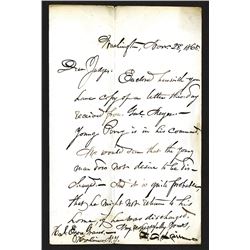 Washington, Nov. 28, 1865
Dear Judge:
Enclosed herewith you
have copy of a letter this day
received from Genl Meigs—
Young Perry is in his command
He would seem that the young
man does not desire to be dis-
charged — and it is quite probable
that he might not return to his
home if he was discharged.
Very respectfully Yours,
Hon.